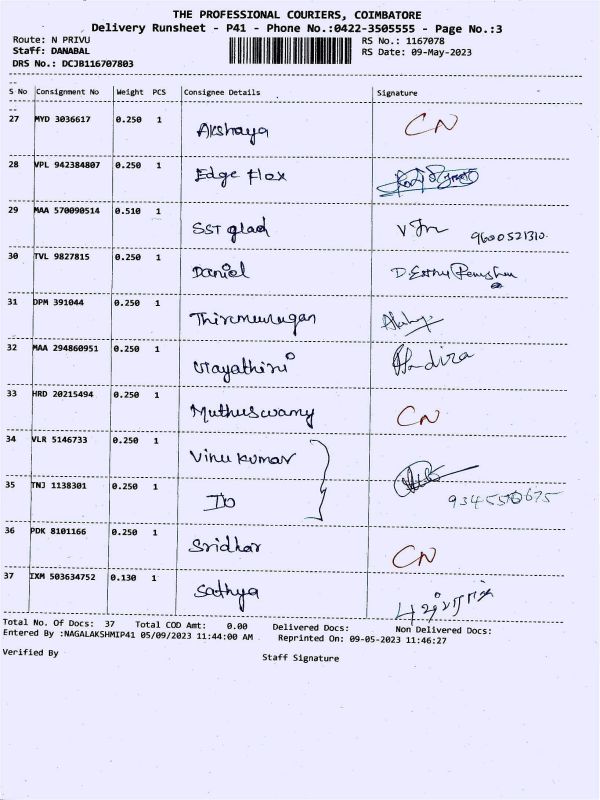 THE PROFESSIONAL COURIERS, COIMBATORE
Delivery Runsheet - P41 - Phone No.:0422-3505555 - Page No.:3
Route: N PRIVU RS No.: 1167078
Staff: DANABAL RS Date: 09-May-2023
DRS No.: DCJB116707803
S No Consignment No Weight PCS Consignee Details Signature
27 MYD 3036617 0.250 1 Akshaya CN
28 VPL 942384807 0.250 1 Edge Flex
29 MAA 570090514 0.510 1 SST glad 9600521310
30 TVL 9827815 0.250 1 Daniel
31 DPM 391044 0.250 1 Thirumurugan
32 MAA 294860951 0.250 1
33 HRD 20215494 0.250 1 Muthuswamy CN
34 VLR 5146733 0.250 1 Vinu kumar
35 TNJ 1138301 0.250 1
36 PDK 8101166 0.250 1 Sridhar CN
37 IXM 503634752 0.130 1 Sathya
Total No. Of Docs: 37 Total COD Amt: 0.00 Delivered Docs: Non Delivered Docs:
Entered By :NAGALAKSHMIP41 05/09/2023 11:44:00 AM . Reprinted On: 09-05-2023 11:46:27
Verified By Staff Signature